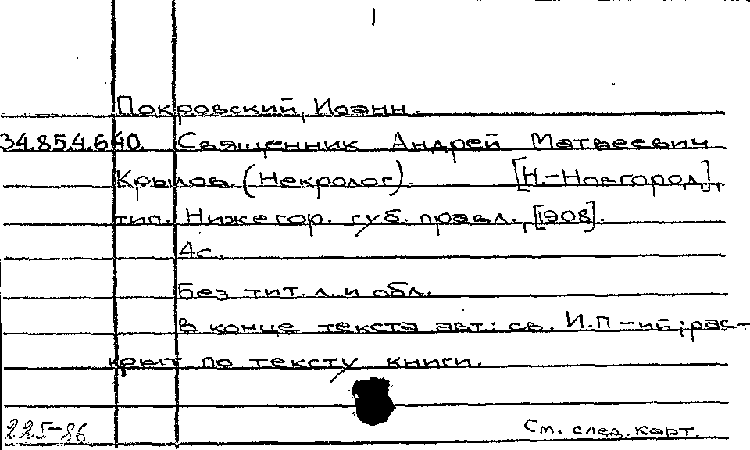 Покровский, Иоанн.
34.854.640. Священник Андрей Матвеевич
Крылов. (Некролог). [Н.-Новгород],
тип. Нижегор. губ. правл., [1908].
4с.
Без тит. л. и обл.
В конце текста авт: св. И.П-ий; рас-
крыт по тексту книги.
225-86
См. след. карт.